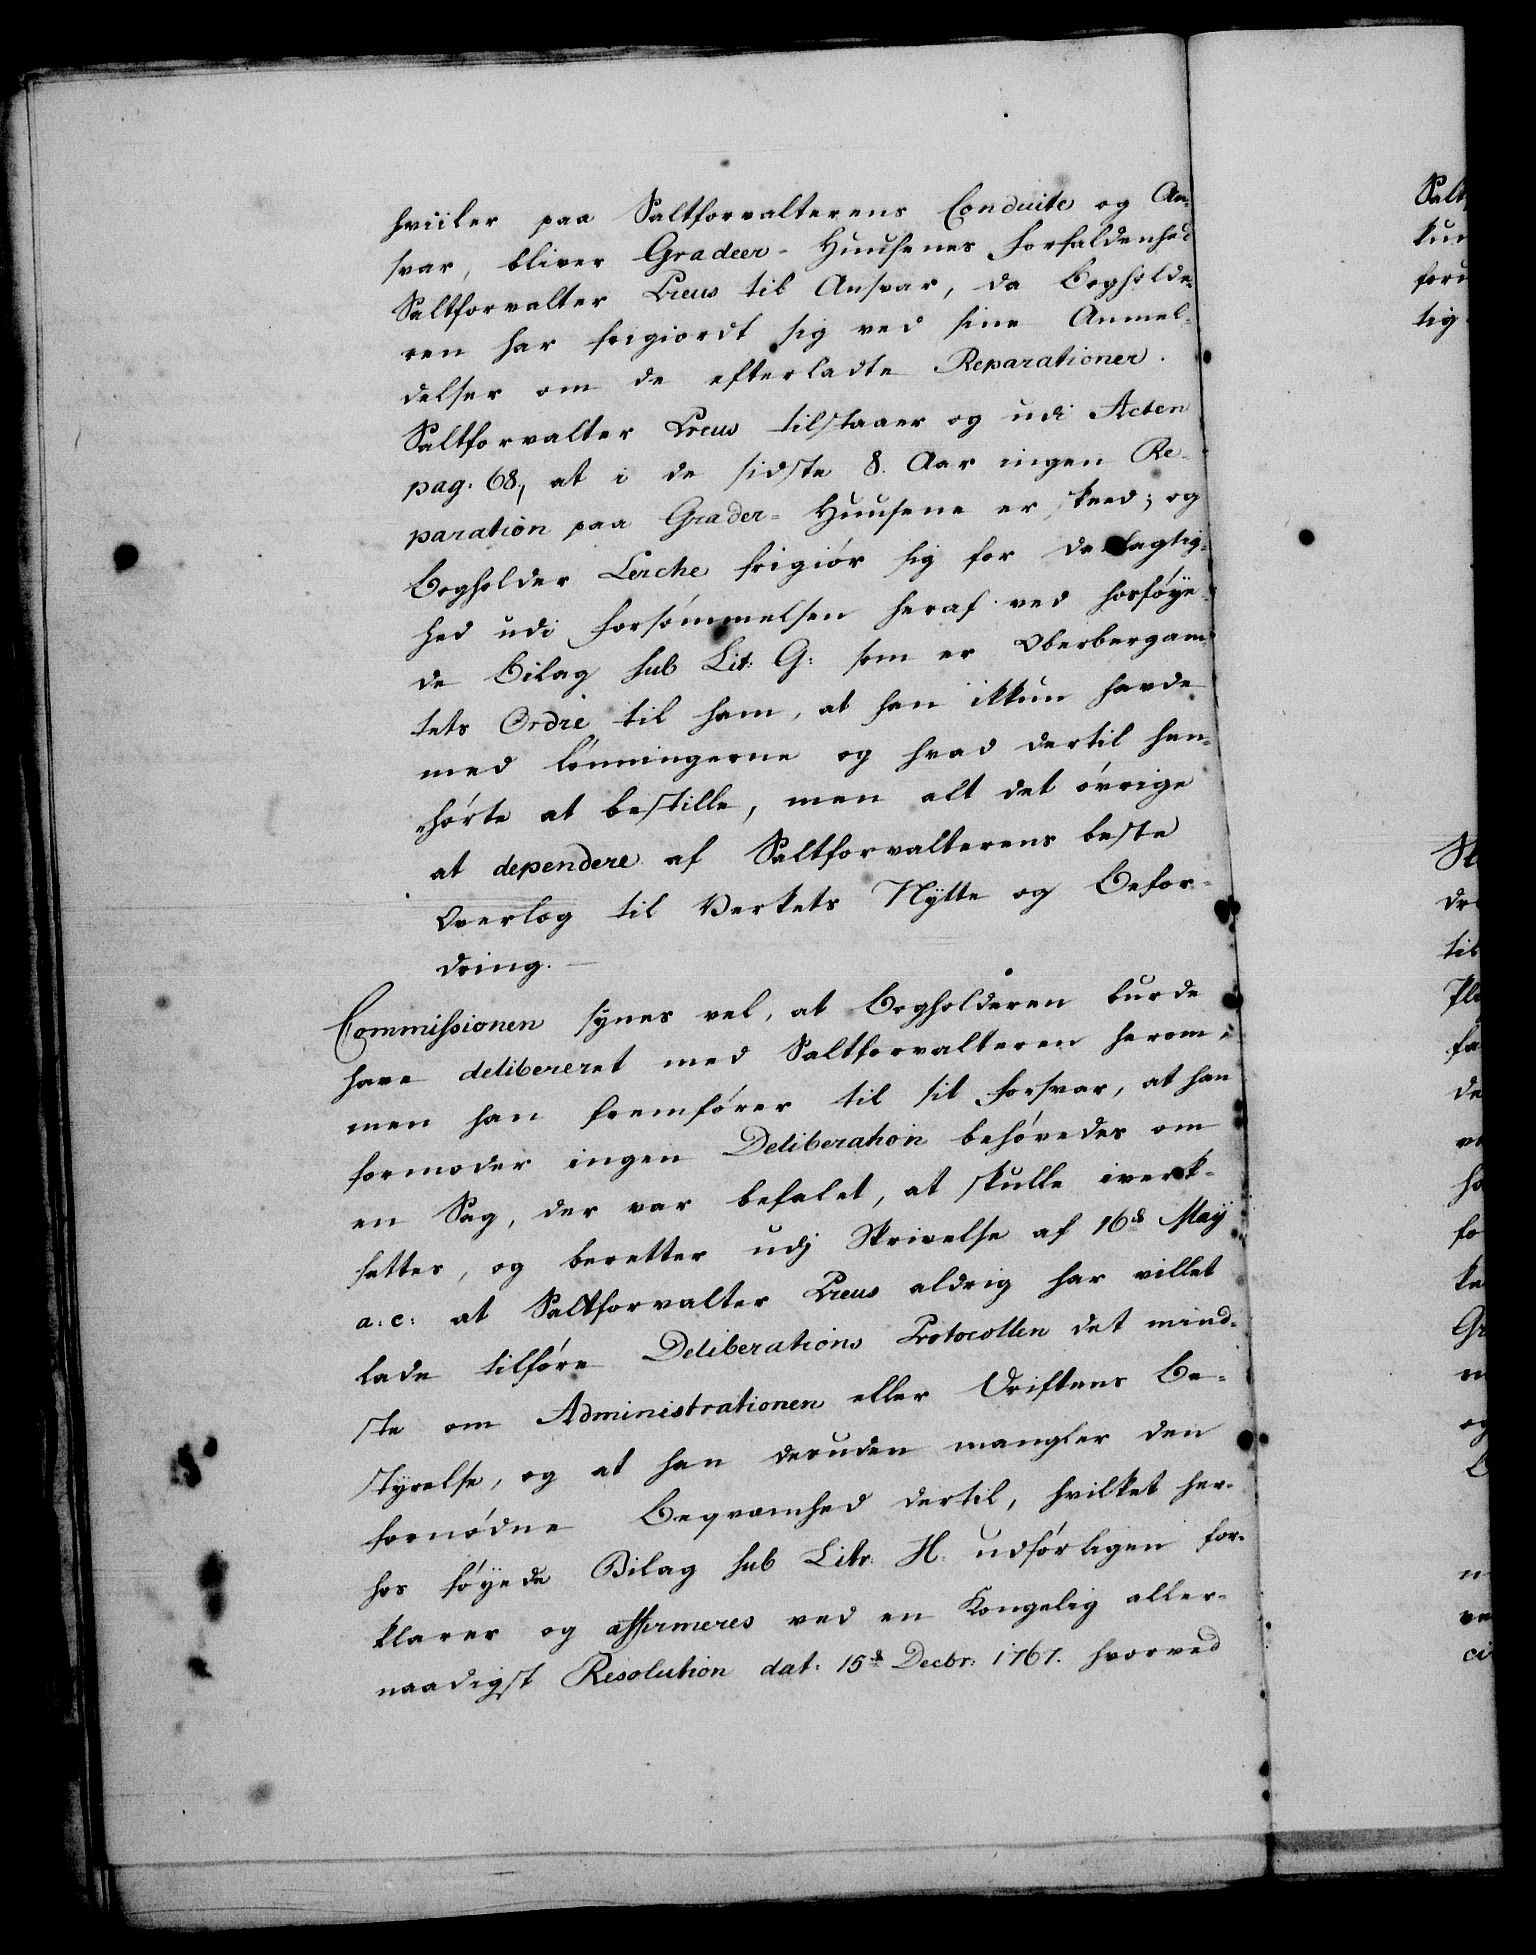 hviiler paa Saltforvalterens Conduite og An-
svar, bliver Gradeer-Huusenes Forfaldenhed
Saltforvalter Preus til Ansvar, da Bogholde-
ren har frigiordt sig ved sine Anmel-
delser om de efterladte Reparationer.
Saltforvalter Preus tilstaaer og udi Acten
pag: 68, at i de sidste 8. Aar ingen Re-
paration paa Grader-Huusene er skeed; og
Bogholder Lerche frigiör sig for Delagtig-
hed udi Forsömmelsen heraf ved hosföye-
de Bilag sub Lit: G: som er Oberbergam-
tets Ordre til ham, at han ikkun havde
med Lönningerne og hvad dertil hen-
hörte at bestille, men alt det övrige
at dependere af Saltforvalterens beste
Overlæg til Verkets Nÿtte og Befor-
dring.
Commissionen synes vel, at Bogholderen burde
have delibereret med Saltforvalteren herom,
men han fremförer til sit Forsvar, at han
formoder ingen Deliberation behövedes om
en Sag, der var befalet, at skulle iverk-
settes, og beretter udj Skrivelse af 16de Maÿ
a: c: at Saltforvalter Preus aldrig har villet
lade tilföre Deliberations Protocollen det mind-
ste om Administrationen eller Driftens Be-
styrelse, og at han desuden mangler den
fornödne Beqvæmhed dertil, hvilket her-
hos föyede Bilag sub Litr: H. udförligen for-
klarer og affirmeres ved en Kongelig aller-
naadigst Resolution dat: 15de Decbr: 1767. hvorved